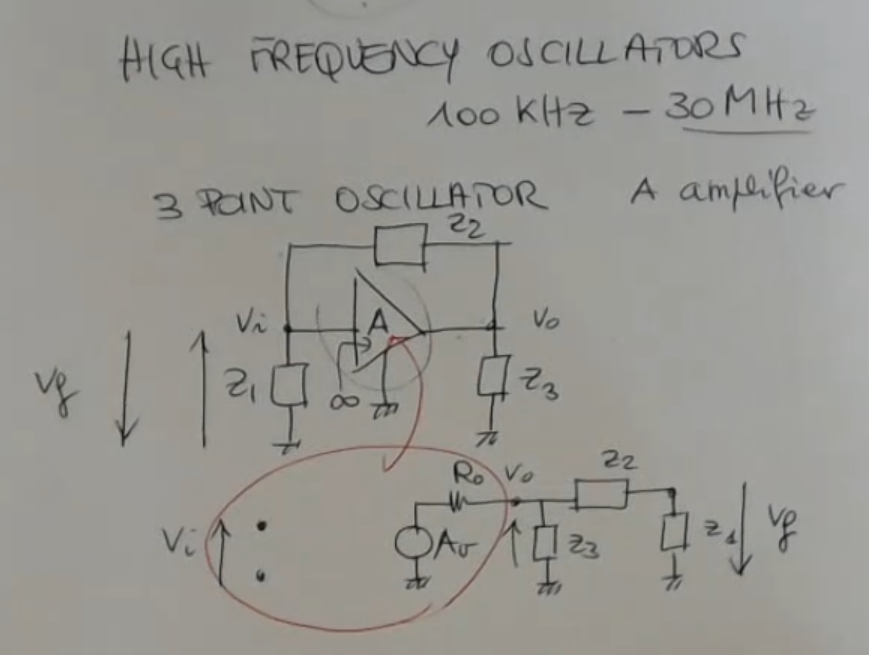 HIGH FREQUENCY OSCILLATORS
100 KHz - 30 MHz
3 POINT OSCILLATOR A amplifier
Z2
Vi A Vo
Vf Z1 ∞ Z3
Ro Vo Z2
Vi Av Z3 Z1 Vf